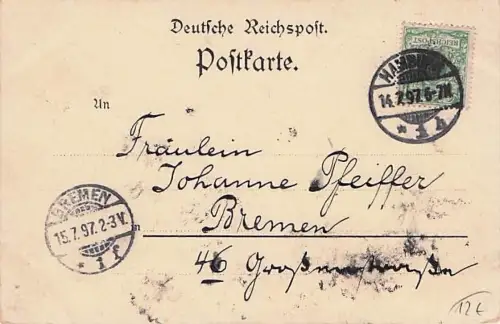 Deutsche Reichspost.
Postkarte.
REICHSPOST
HAMBURG
14.7.97.6-7N.
* 1 h
An
Fräulein
Johanne Pfeiffer
BREMEN
15.7.97.2-3V.
* 1 f
in
Bremen
46
12€